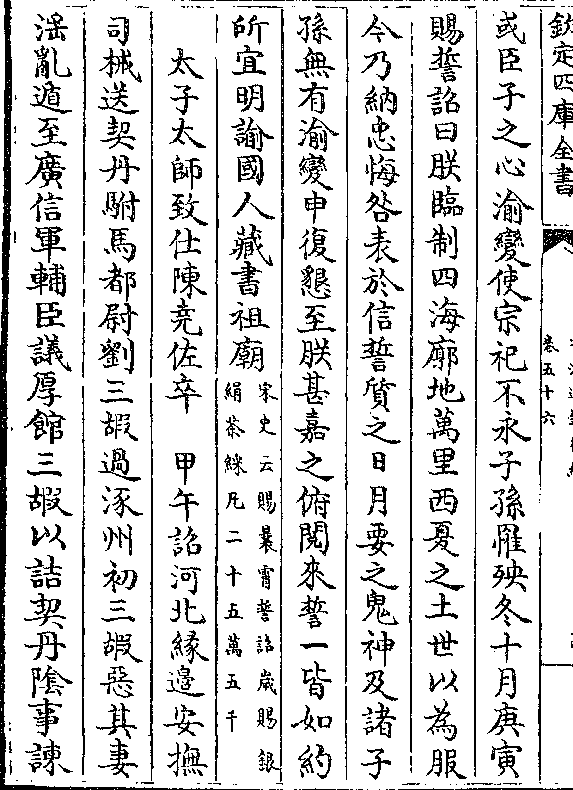 欽定四庫全書
卷五十六
或臣子之心渝變使宗祀不永子孫罹殃冬十月庚寅
賜誓詔曰朕臨制四海廓地萬里西夏之土世以為服
今乃納忠悔咎表於信誓質之日月要之鬼神及諸子
孫無有渝變申復懇至朕甚嘉之俯閱來誓一皆如約
所宜明諭國人藏書祖廟宋史云賜曩霄誓詔歲賜銀
絹茶綵凡二十五萬五千
太子太師致仕陳堯佐卒 甲午詔河北緣邉安撫
司械送契丹駙馬都尉劉三嘏過涿州初三嘏惡其妻
滛亂遁至廣信軍輔臣議厚館三嘏以詰契丹隂事諫